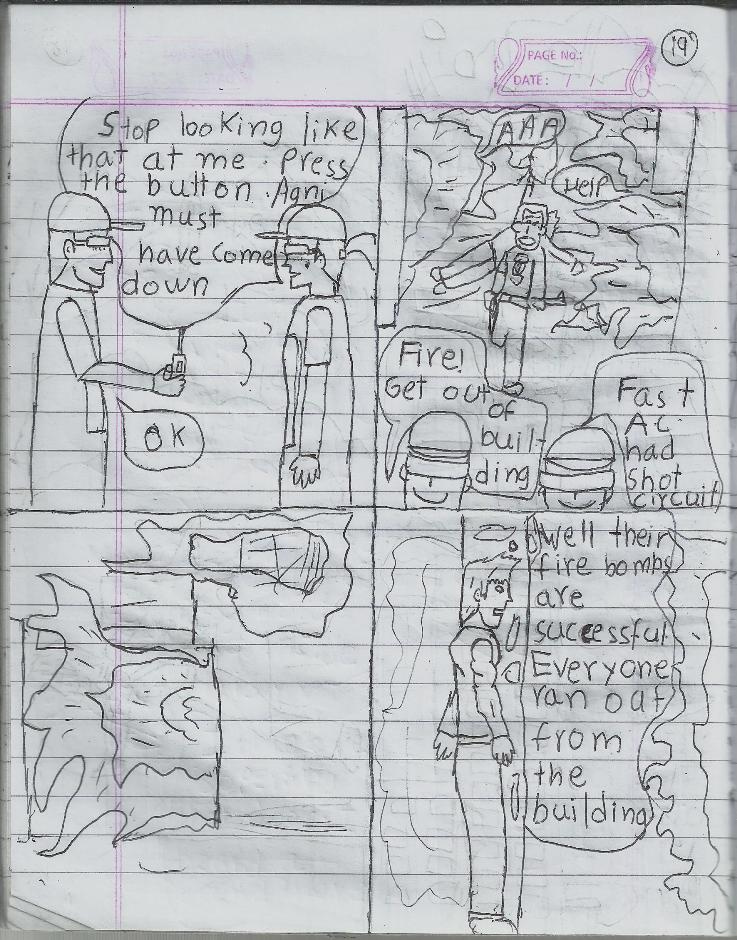 PAGE No.:
DATE: / /
19
Stop looking like
that at me. Press
the button. Agni
must
have come
down
OK
AAA
A
Help
Fire!
Get out
of
buil-
ding
Fast
AC
had
Shot
circuit
Well their
fire bombs
are
successful.
Everyone
ran out
from
the
building